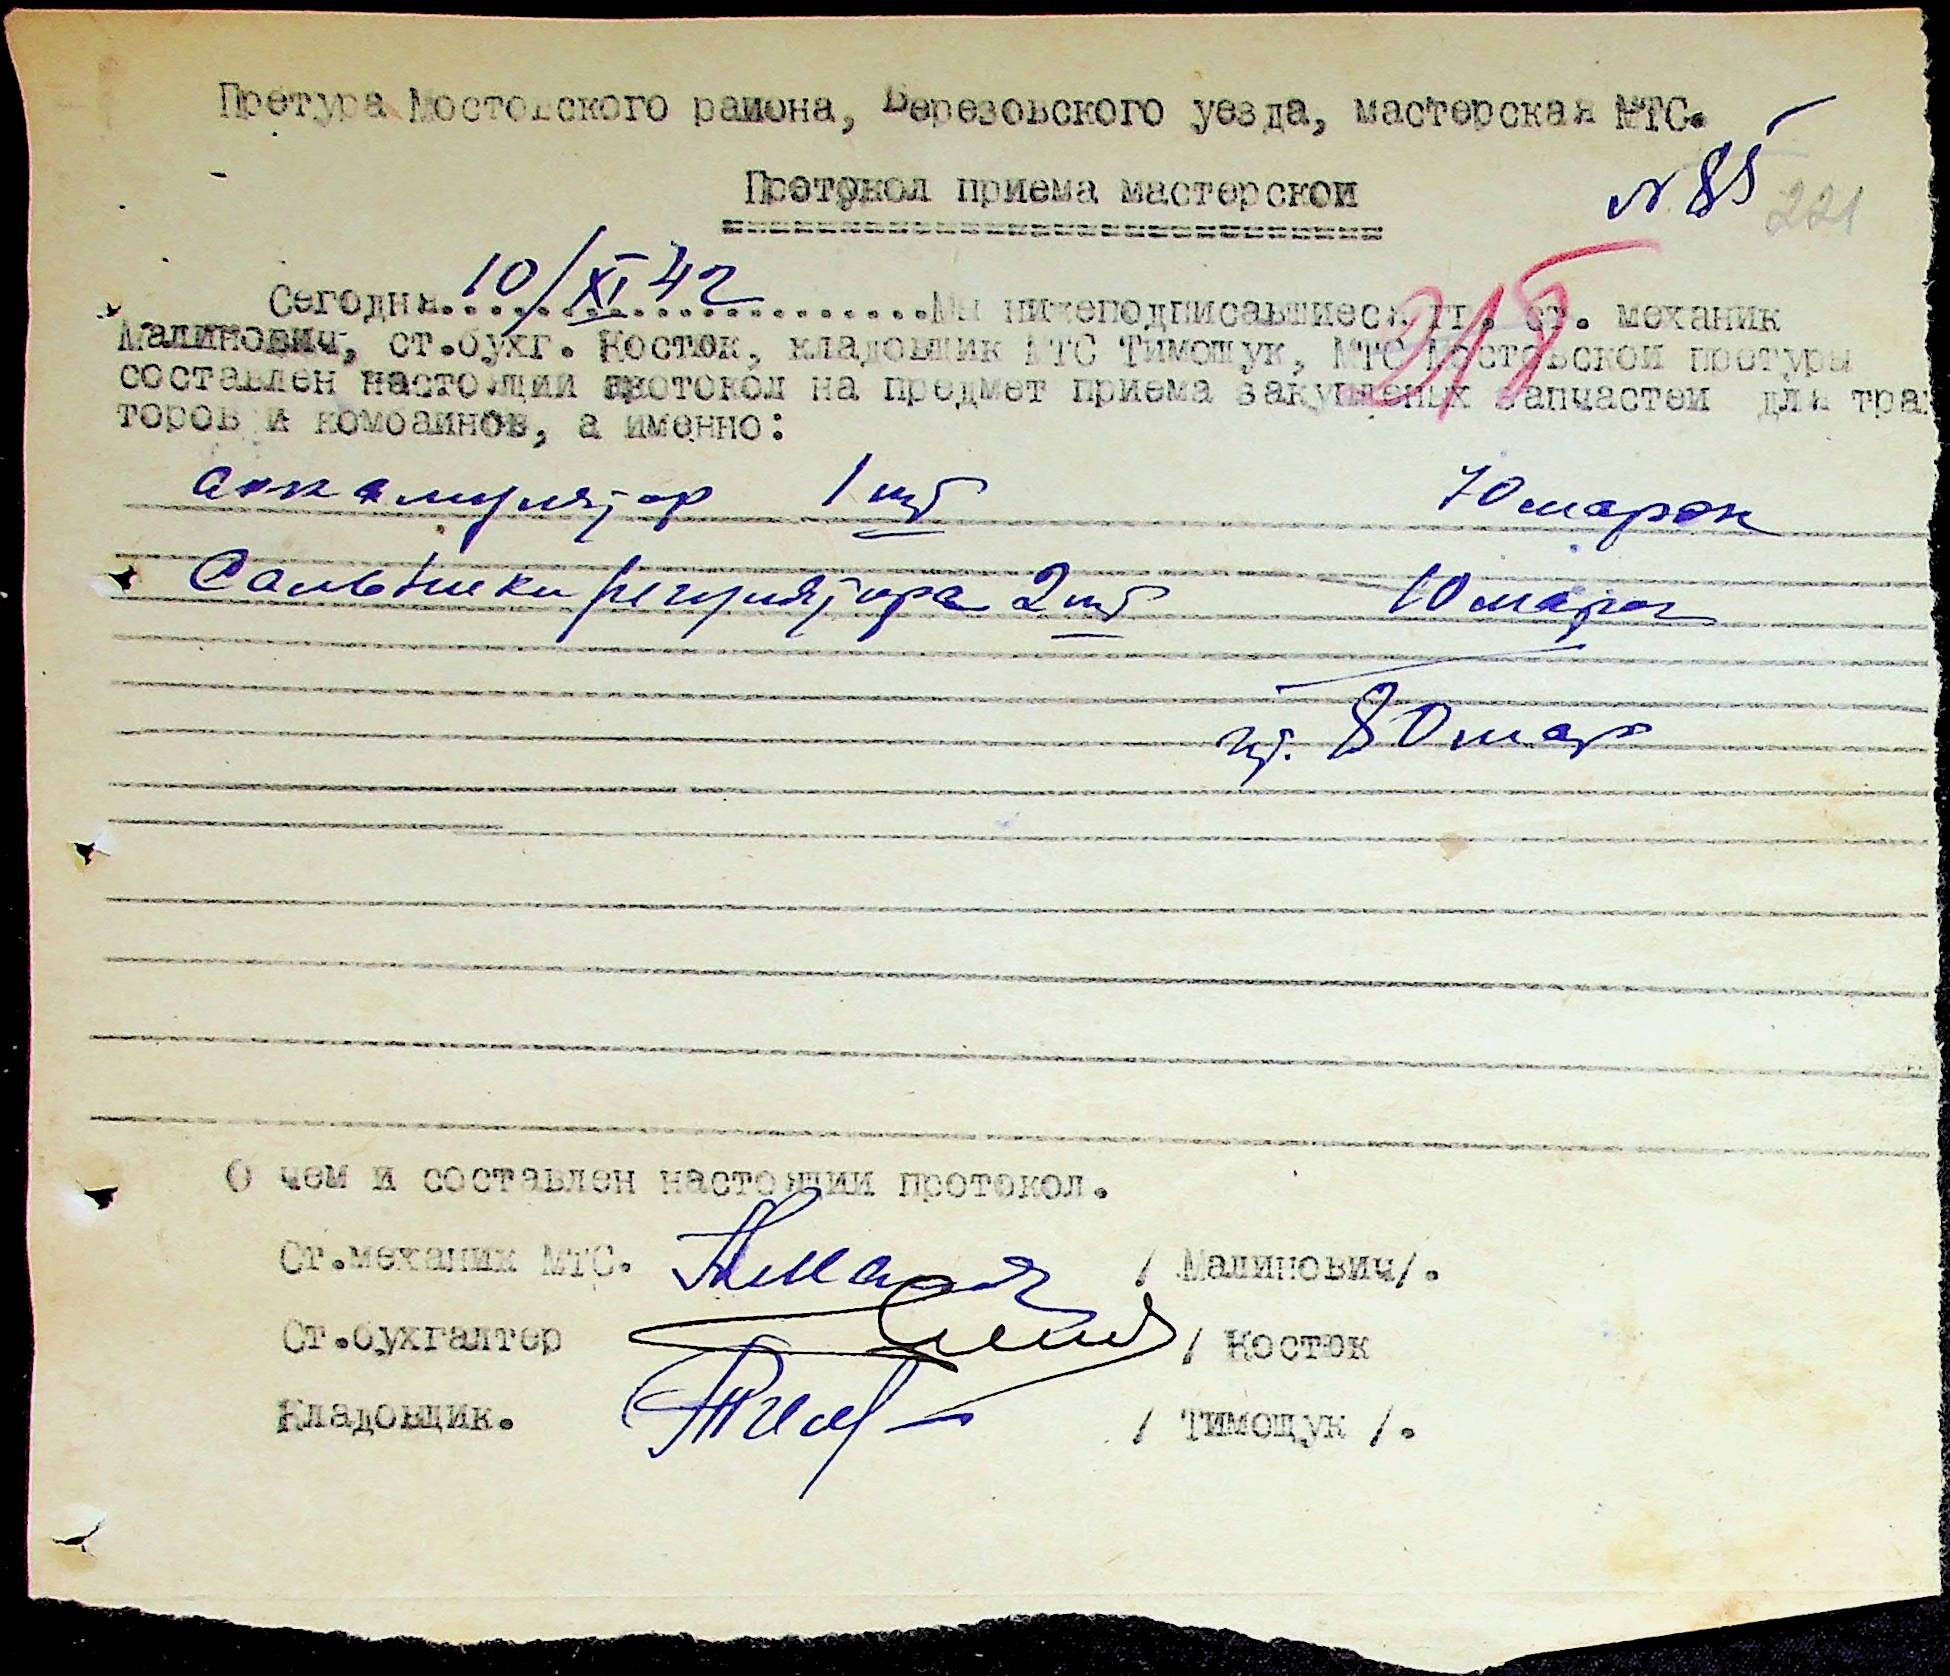 Претура Мостовского района, Березовского уезда, мастерская МТС.
№ 85
221
Протокол приема мастерской
Сегодня 10/XI 42 Мы нижеподписавшиеся гг. ст. механик
Малинович, ст.бухг. Косток, кладовщик МТС Тимощук, МТС Мостовской претуры
составлен настоящий протокол на предмет приема закупленых запчастей для трак
торов и комбаинов, а именно:
218
аккамулятор 1 шт 70 марок
Сальники регулятора 2 шт 10 марок
ит. 80 мар
О чем и составлен настоящий протокол.
Ст.механик МТС. / Малинович/.
Ст.бухгалтер / Косток
Кладовщик. / Тимощук /.